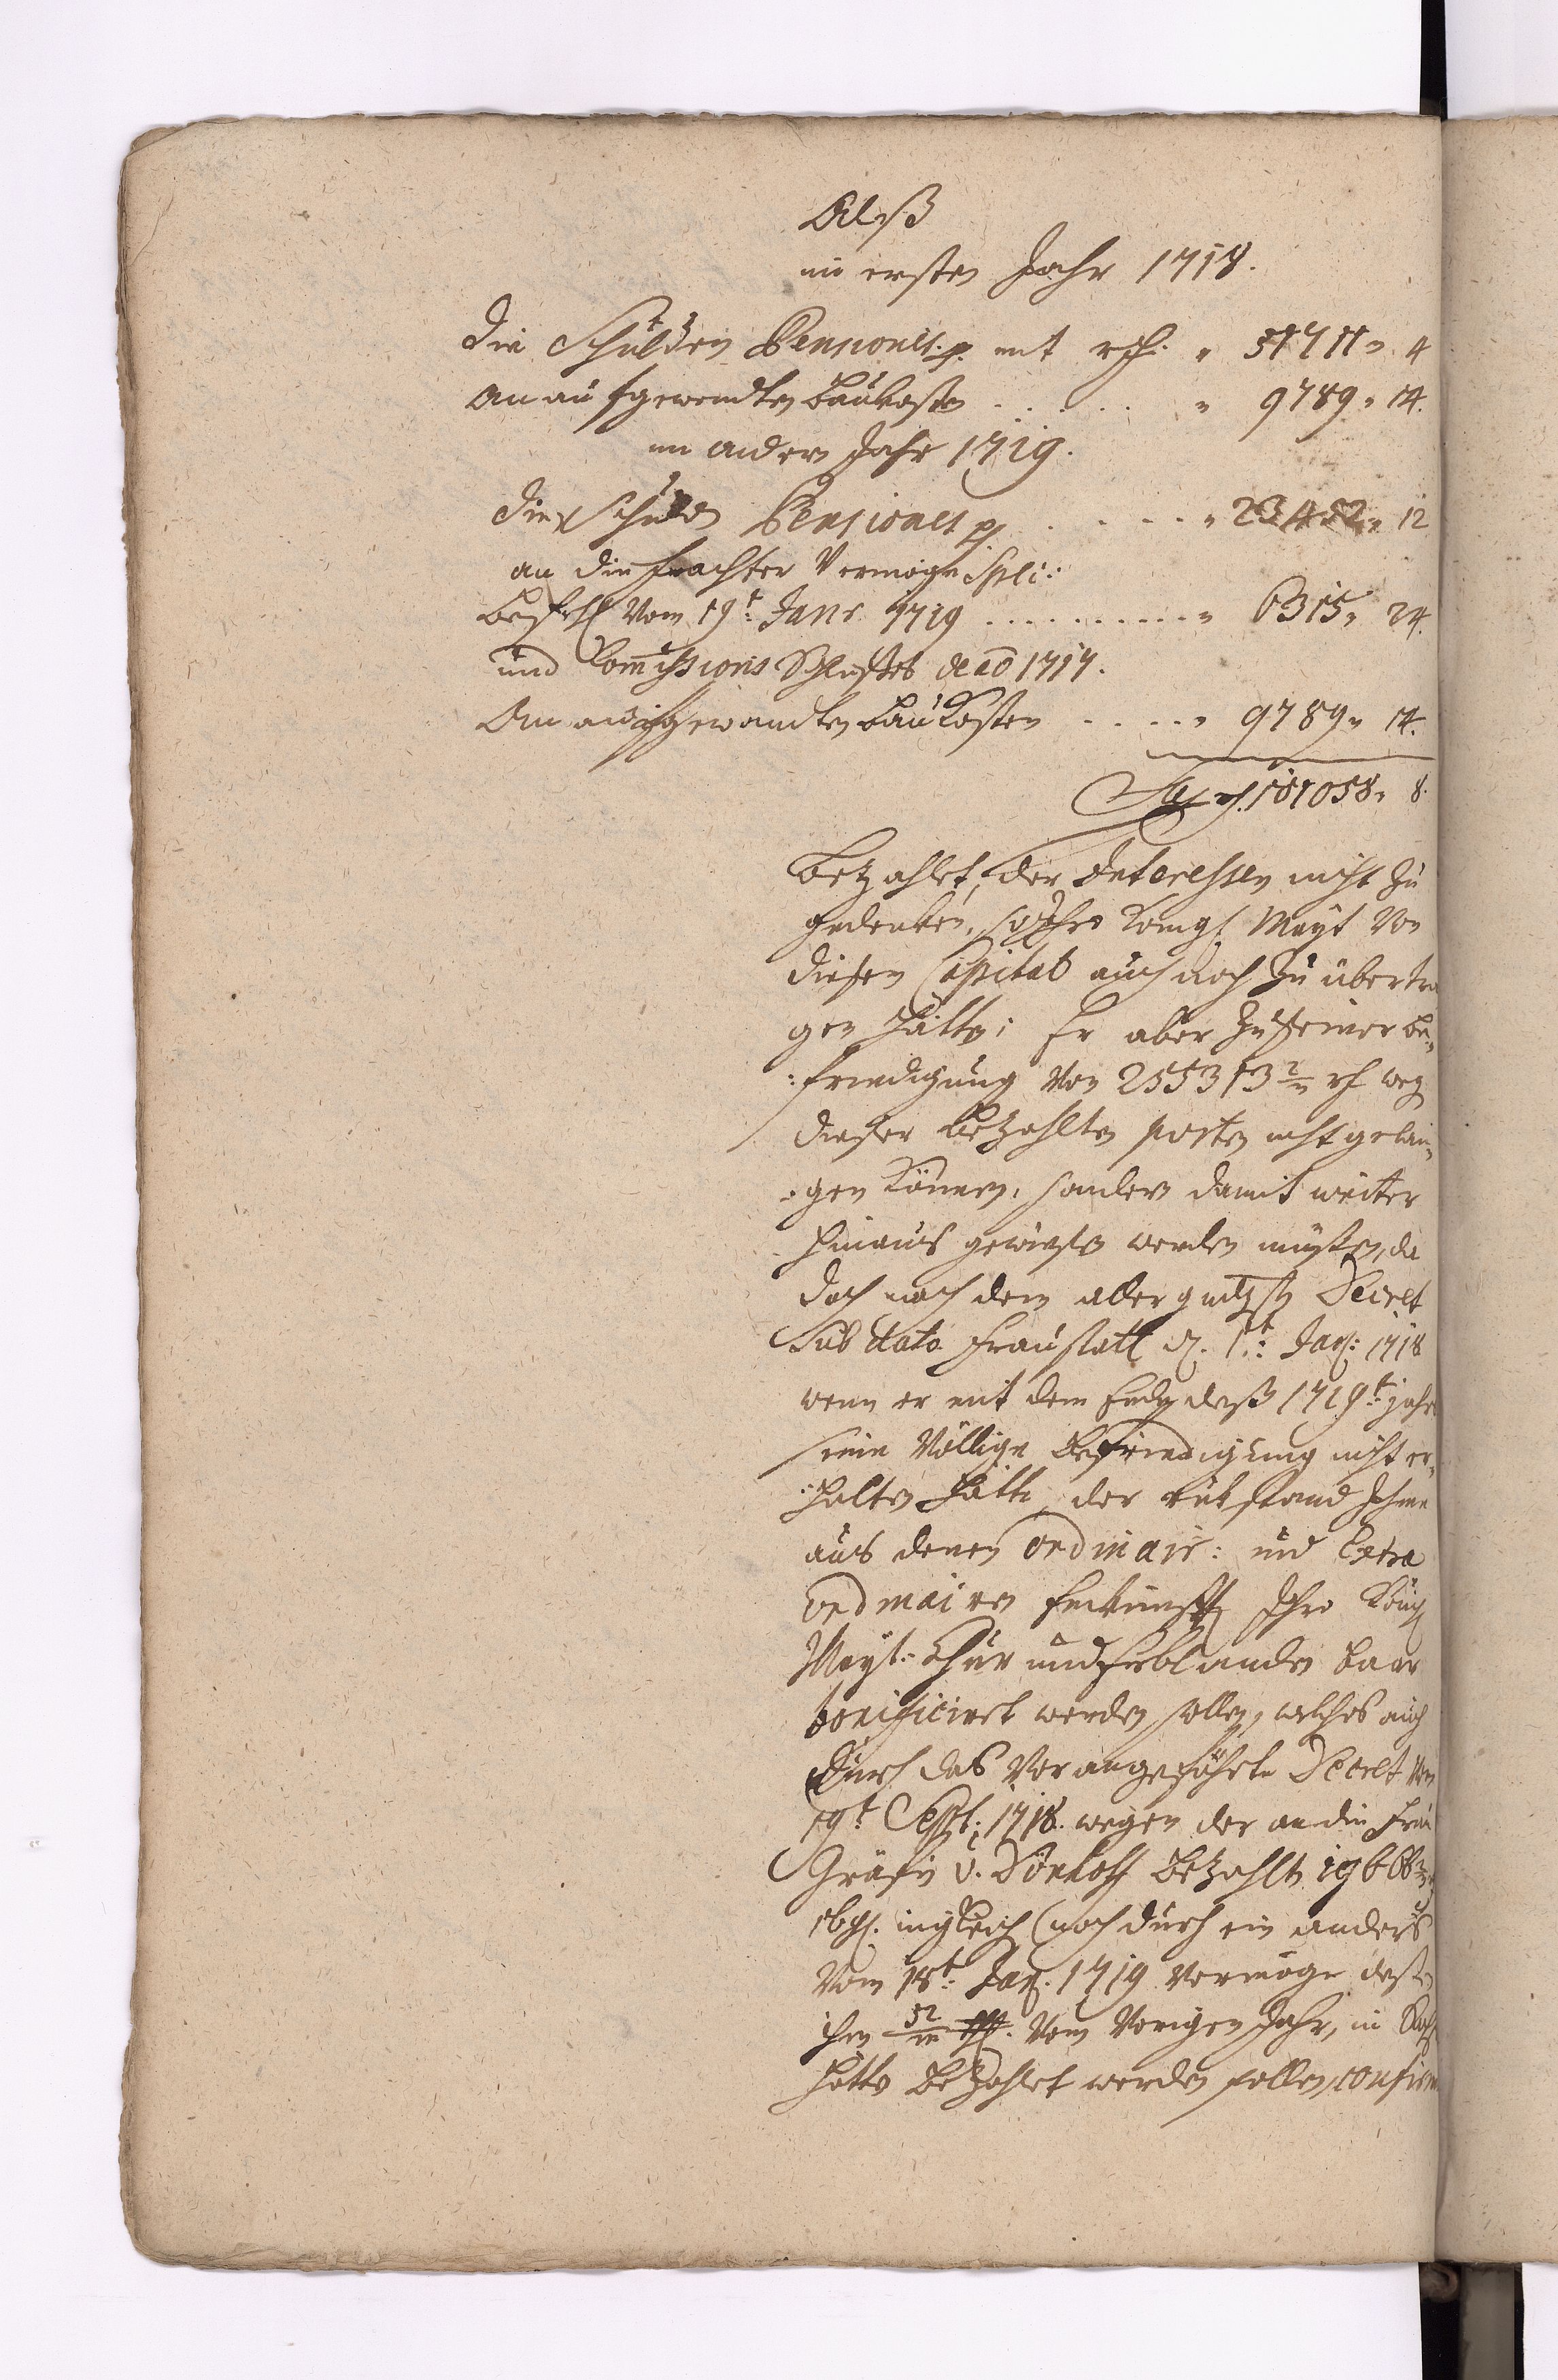 Alß
im ersten Jahr 1718.
die Schulden Pensiones p. mit rth. " 51711 " 4
an aufgewendten Baukosten . . . . . " 9789 " 14.
im andern Jahr 1719.
die Schulden Pensiones p . . . . . " 23452 " 12
an die Pachter Vermöge Spec:
Befehl Vom 19t: Janr. 1719 . . . . . . . . . . " 6315 " 24.
und Commissions Schlusses de ao 1717.
An aufgewandten Bau Kosten . . . . " 9789 " 14.
101058 " 8.
Bezahlet, der Interessen nicht zu
gedenken, so Ihro Königl. Mayt Von
diesen Capital auch noch zu übertra
gen hätte; Er aber zu seiner Be¬
:friedigung Von 25531 3 rth weg
dieser Bezahlten posten nicht gelan¬
:gen können, sondern damit weiter
hinaus gewiesen werden müßen, da
doch nach dem allergndgsten Decret
Sub dato Fraustatt d. 1t: Jan: 1718
wenn er mit dem Ende deß 1719t: jahrs
seine Völlige Befriedigung nicht er¬
:halten hätte, der rükstand Ihme
aus denen ordinair: und Extra
ordinairen Einkünfften Ihro Königl
Mayt: Chur und Erblanden baar
bonificiret werden sollen, welches auch
durch das Vorangeführte Decret Vom
19t Sept: 1718. wegen der an die Frau
Gräfin v. Dönhoff Bezahlten 19666
16 gl. ingleich noch durch ein anders
Vom 18t: Jan. 1719 Vermöge deßen
ihm 52/m rthl. Vom Vorigen Jahr, in
hätte Bezahlet werden sollen, confirm